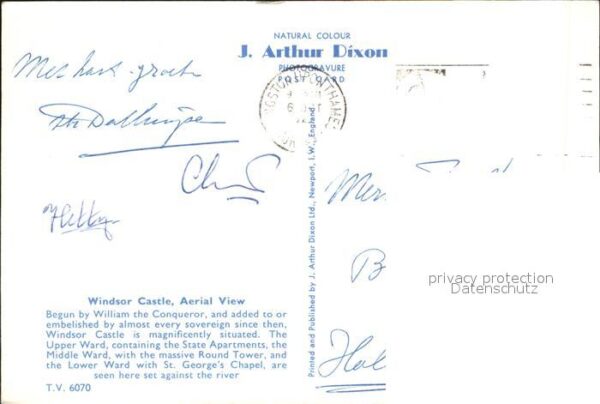 NATURAL COLOUR
J. Arthur Dixon
PHOTOGRAVURE
POST CARD
Met hart. groeten
Chris
Printed and Published by J. Arthur Dixon Ltd., Newport, I.W., England.
privacy protection
Datenschutz
Windsor Castle, Aerial View
Begun by William the Conqueror, and added to or
embelished by almost every sovereign since then,
Windsor Castle is magnificently situated. The
Upper Ward, containing the State Apartments, the
Middle Ward, with the massive Round Tower, and
the Lower Ward with St. George's Chapel, are
seen here set against the river
T.V. 6070